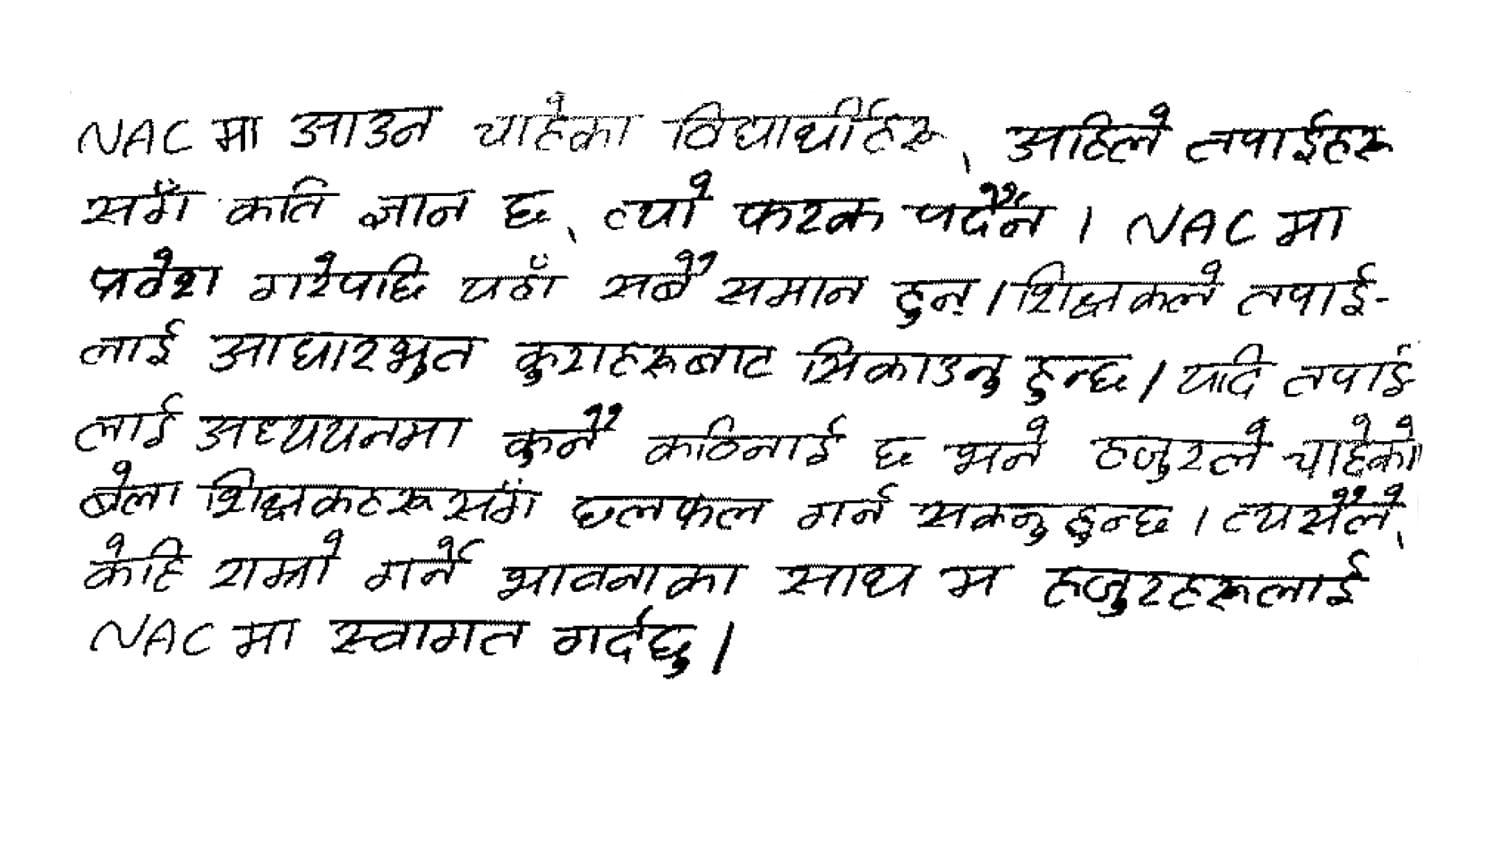 NAC मा आउन चाहेका विद्यार्थीहरू, अहिले तपाईहरू
सँग कति ज्ञान छ, त्यो फरक पर्दैन । NAC मा
प्रवेश गरेपछि यहाँ सबै समान हुन् । शिक्षकले तपाई-
लाई आधारभुत कुराहरूबाट सिकाउनु हुन्छ । यदि तपाई
लाई अध्ययनमा कुनै कठिनाई छ भने हजुरले चाहेको
बेला शिक्षकहरूसँग छलफल गर्न सक्नु हुन्छ । त्यसैले,
केहि राम्रो गर्ने भावनाका साथ म हजुरहरूलाई
NAC मा स्वागत गर्दछु ।